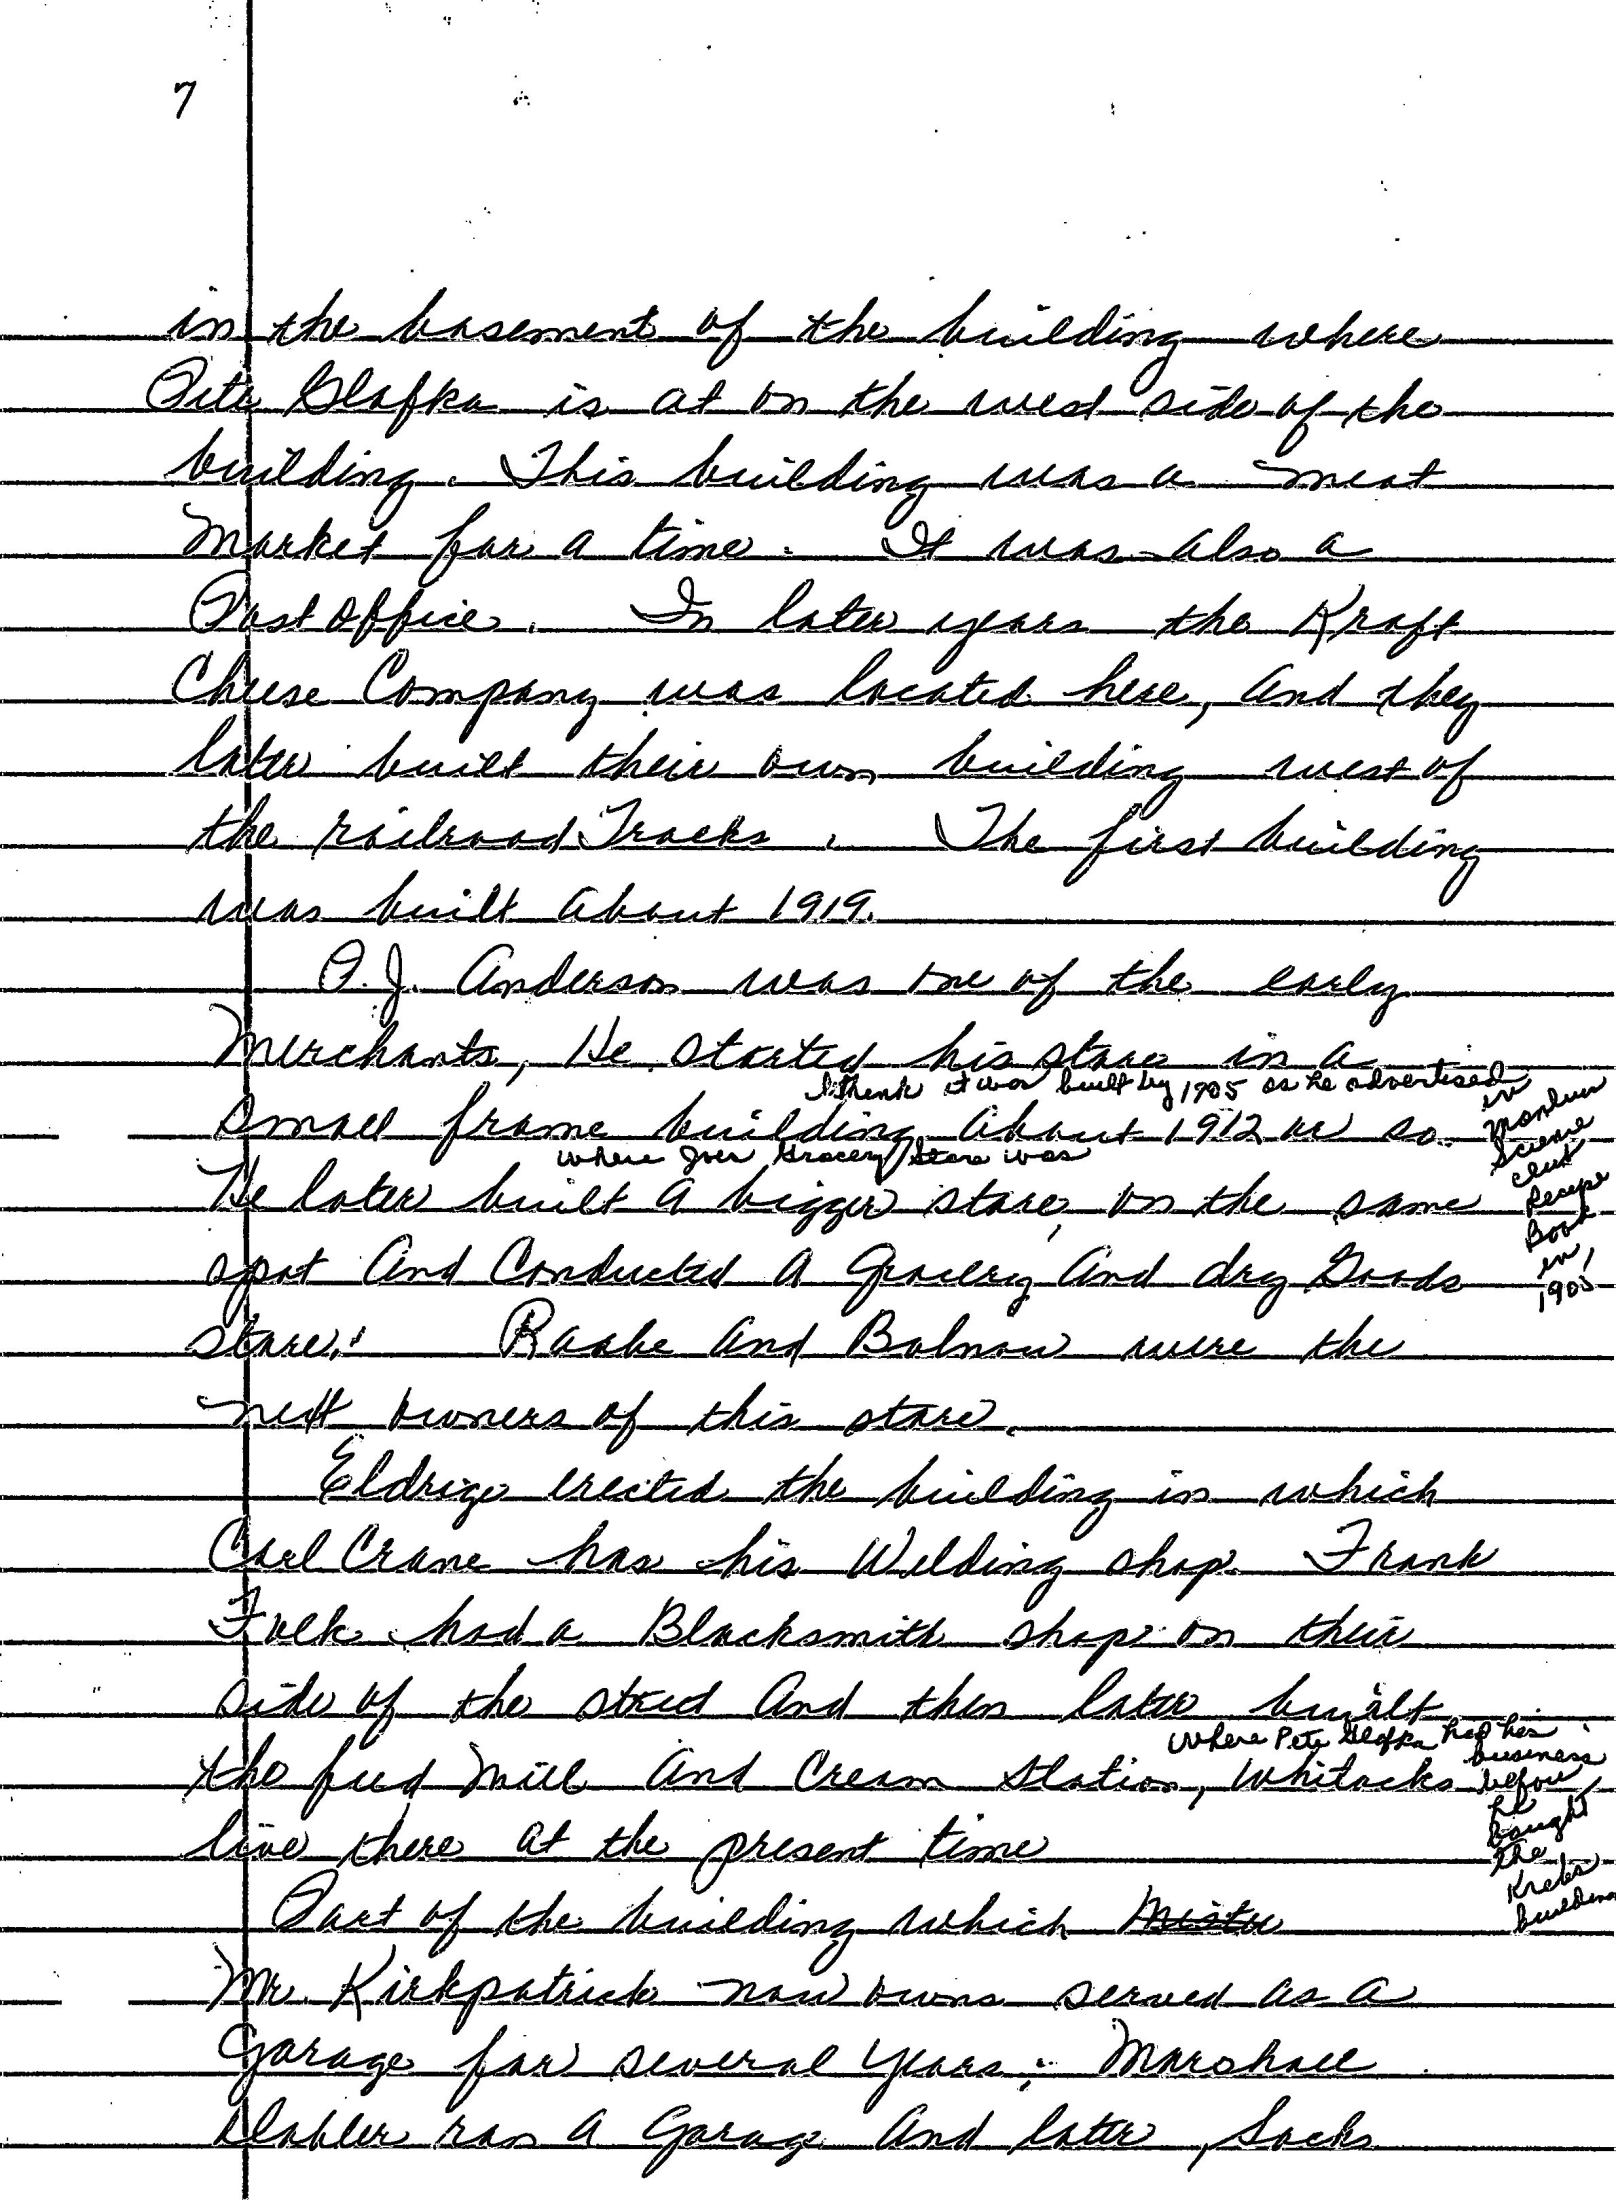 7
in the basement of the building where
Pete Glafka is at on the west side of the
building. This building was a meat
Market for a time. It was also a
Post Office. In later years the Kraft
Cheese Company was located here, and they
later built their own building west of
the railroad Tracks. The first building
was built about 1919.
P.J. Anderson was one of the early
Merchants, He started his store in a
I think it was built by 1905 as he advertised
in
Science
Club
Recipe
Book
in
1905
small frame building about 1912 or so.
where Joes Grocery Store was
He later built a bigger store, on the same
spot And Conducted A Grocery And dry Goods
store. Raabe And Bolnow were the
next owners of this store.
Eldrige erected the building in which
Carl Crane has his Welding shop. Frank
Fulk had a Blacksmith shop on their
side of the street And then later built
where Pete Glafka had his
business
before
he
bought
the
Krebs
building
the feed Mill And Cream Station, Whitacks
live there at the present time
Part of the building which Mister
Mr. Kirkpatrick now owns served as a
Garage for several years. Marshall
ran A Garage And later, Sacks